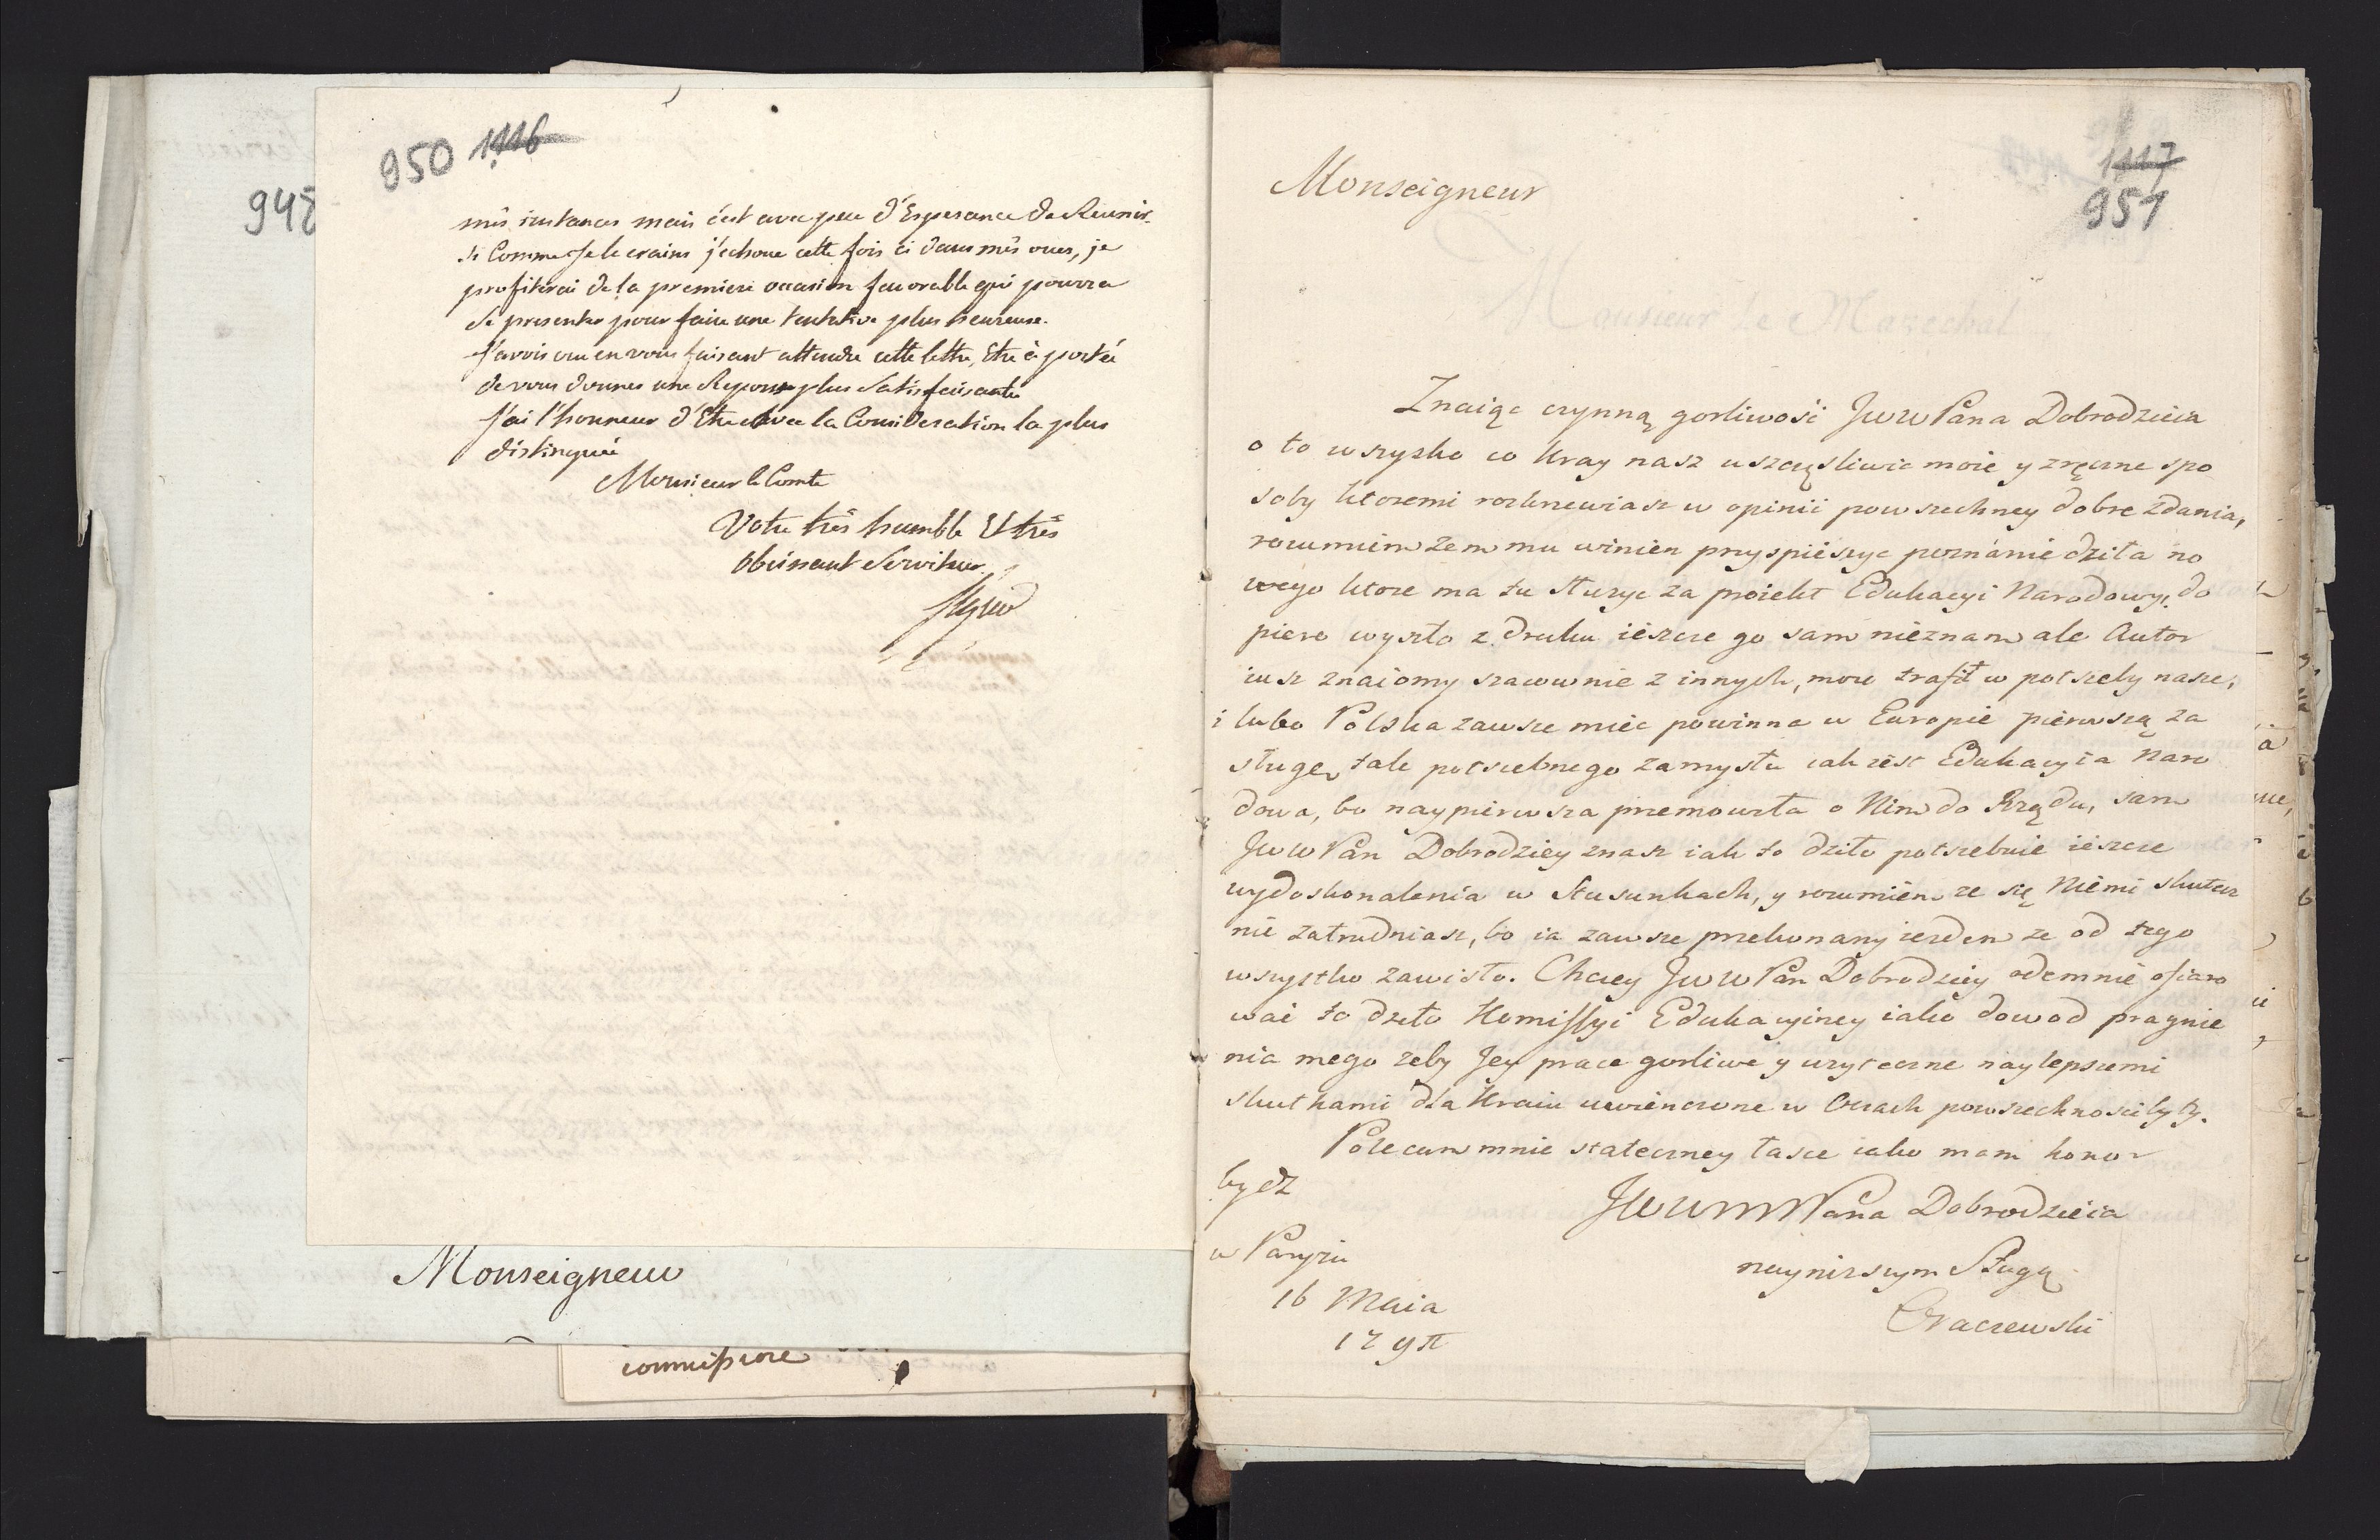 950 1116
948
més instances mais c'est avec peu d'Esperance de Reunir.
Si Comme Je le crains j'echoue cette fois ci dans més vues, je
profiterai de la premiere occasion favorable qui pourra
Se presenter pour faire une tentative plus heureuse.
J'avois cru en vous faisant attendre cette lettre, Etre à portée
de vous donner une Reponse plus Satisfaisante
J'ai l'honneur d'Etre avec la Consideration la plus
distinguée
Monsieur le Comte
Votre très humble Et très
obéissant Serviteur
Monseigneur
commissione
1117
951
Monseigneur
Monsieur le Marechal
Znaiąc czynną gorliwość JWWPana Dobrodzieia
o to wszysko co Kray nasz uszczęsliwic może y zręczne spo
soby ktoremi rozkrzewiasz w opinii powszechney dobre zdania,
rozumiem żem mu winien przyspieszyc poznanie dziła no
wego ktore ma tu služyc za proiekt Edukacyi Narodowy, do
piero wyszło z druku ieszcze go sam nieznam ale Autor
iusz znaiomy szacownie z innych, może trafił w potrzeby nasze,
i lubo Polska zawsze miec powinna w Europie pierwszą za
sługę, tak potrzebnego zamysłu iak iest Edukacyia Naro
dowa, bo naypierwsza przemowiła o Nim do Rządu, sam
JWWPan Dobrodziey znasz iak to dziło potrzebuie ieszcze
wydoskonalenia w Stusunkach, y rozumiem ze się Niemi skutecz
nie zatrudniasz, bo ia zawsze przekonany iezdem ze od tego
wszystko zawisło. Chciey JWWPan Dobrodziey odemnie ofiaro
wać to dzeło Komissyi Edukacyiney iako dowod pragnie
nia mego zeby Jey prace gorliwe y uzyteczne naylepszemi
skutkami dla Kraiu uwienczone w Oczach powszechnosci były.
Polecam mnie stateczney łasce iako mam honor
bydz
JWWMPana Dobrodzieia
w Paryżu
nayniszym Sługą
16 Maia
Craczewski